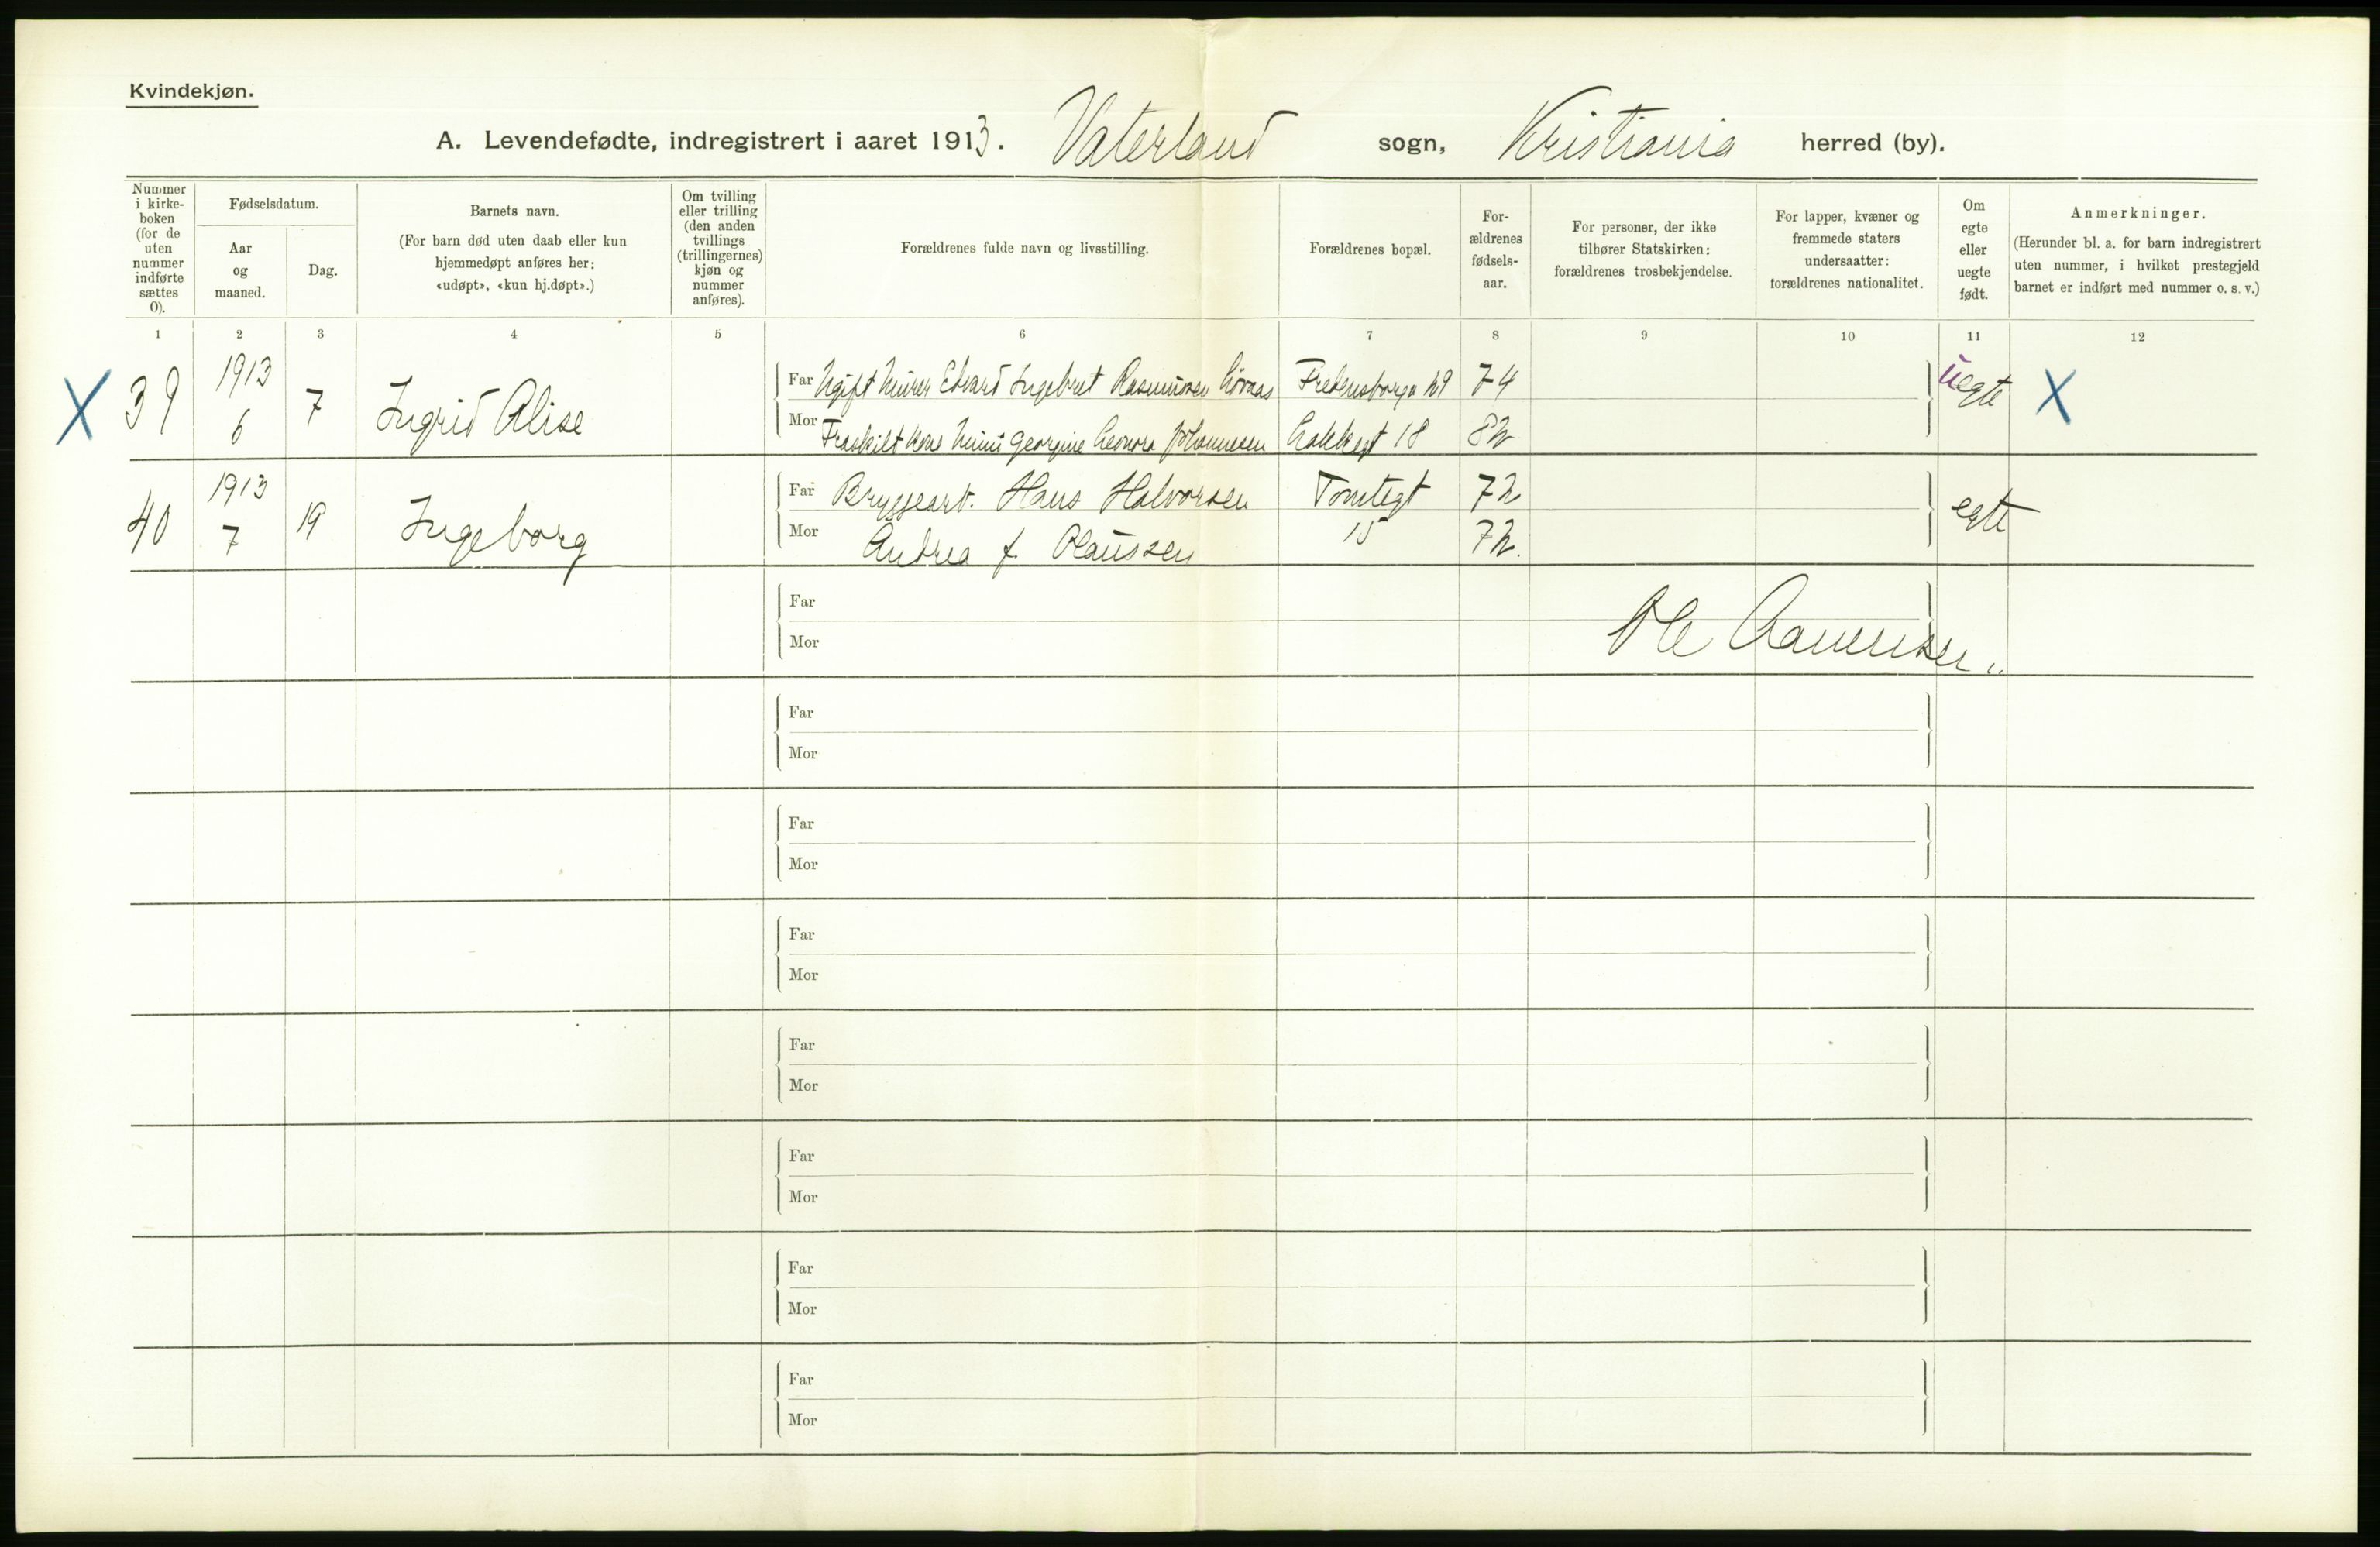 Kvindekjøn.
A. Levendefødte, indregistrert i aaret 1913. Vaterland sogn, Kristiania herred (by).
Nummer i kirke-boken (for de uten nummer indførte sættes 0).
Fødselsdatum.
Aar og maaned.
Dag.
Barnets navn.
(For barn død uten daab eller kun
hjemmedøpt anføres her:
«udøpt», «kun hj.døpt».)
Om tvilling
eller trilling
(den anden
tvillings
(trillingernes)
kjøn og
nummer
anføres).
Forældrenes fulde navn og livsstilling.
Forældrenes bopæl.
For-
ældrenes
fødsels-
aar.
For personer, der ikke
tilhører Statskirken:
forældrenes trosbekjendelse.
For lapper, kvæner og
fremmede staters
undersaatter:
forældrenes nationalitet.
Om
egte
eller
uegte
født.
Anmerkninger.
(Herunder bl. a. for barn indregistrert
uten nummer, i hvilket prestegjeld
barnet er indført med nummer o. s. v.)
1 2 3 4 5 6 7 8 9 10 11 12
X 39 1913 6 7 Ingrid Alise
Far Ugift Murer Edvard Ingebret Rasmussen 74 uegte X
Mor Fraskilt Georgine Leonora Johannesen 18 82
40 1913 7 19 Ingeborg
Far Bryggearb. Hans Halvorsen Tomtegt 72 egte
Mor Andrea f. Olaussen 15 72.
Far
Mor
Ole
Far
Mor
Far
Mor
Far
Mor
Far
Mor
Far
Mor
Far
Mor
Far
Mor